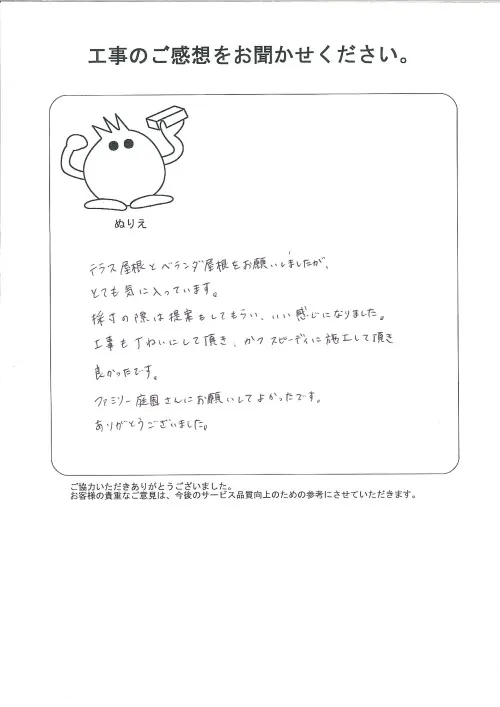 工事のご感想をお聞かせください。
ぬりえ
テラス屋根とベランダ屋根をお願いしましたが、
とても気に入っています。
採寸の際は提案もしてもらい、いい感じになりました。
工事も丁ねいにして頂き、かつスピーディに施工して頂き
良かったです。
ファミリー庭園さんにお願いしてよかったです。
ありがとうございました。
ご協力いただきありがとうございました。
お客様の貴重なご意見は、今後のサービス品質向上のための参考にさせていただきます。